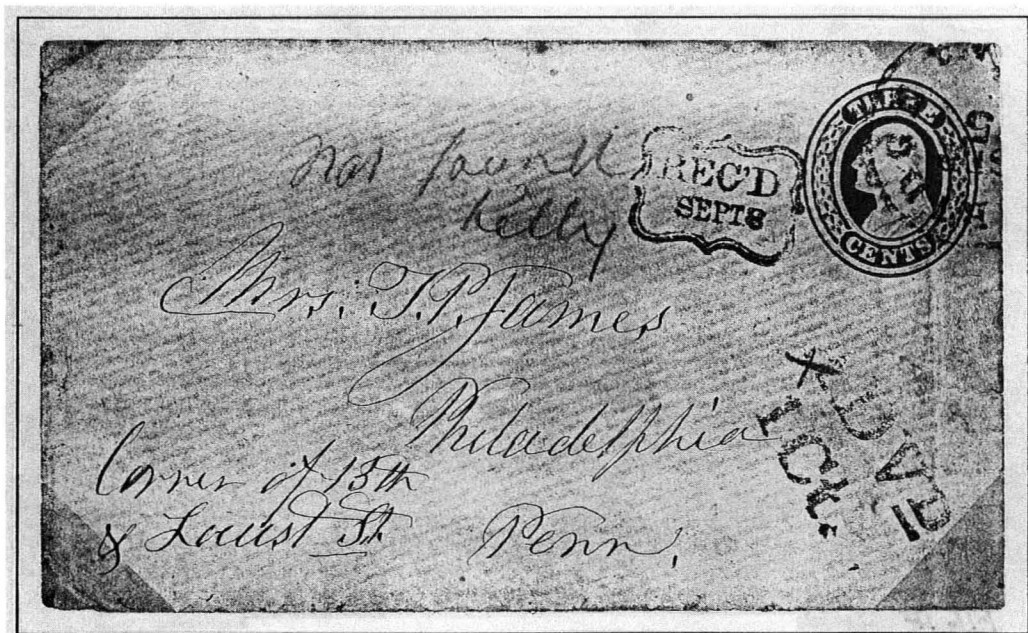 Not found
Kelly
REC'D
SEPT 8
THREE
CENTS
Mrs. T.P. James
Philadelphia
Corner of 15th
& Laust St.
Penn.
ADVD
1Ct.